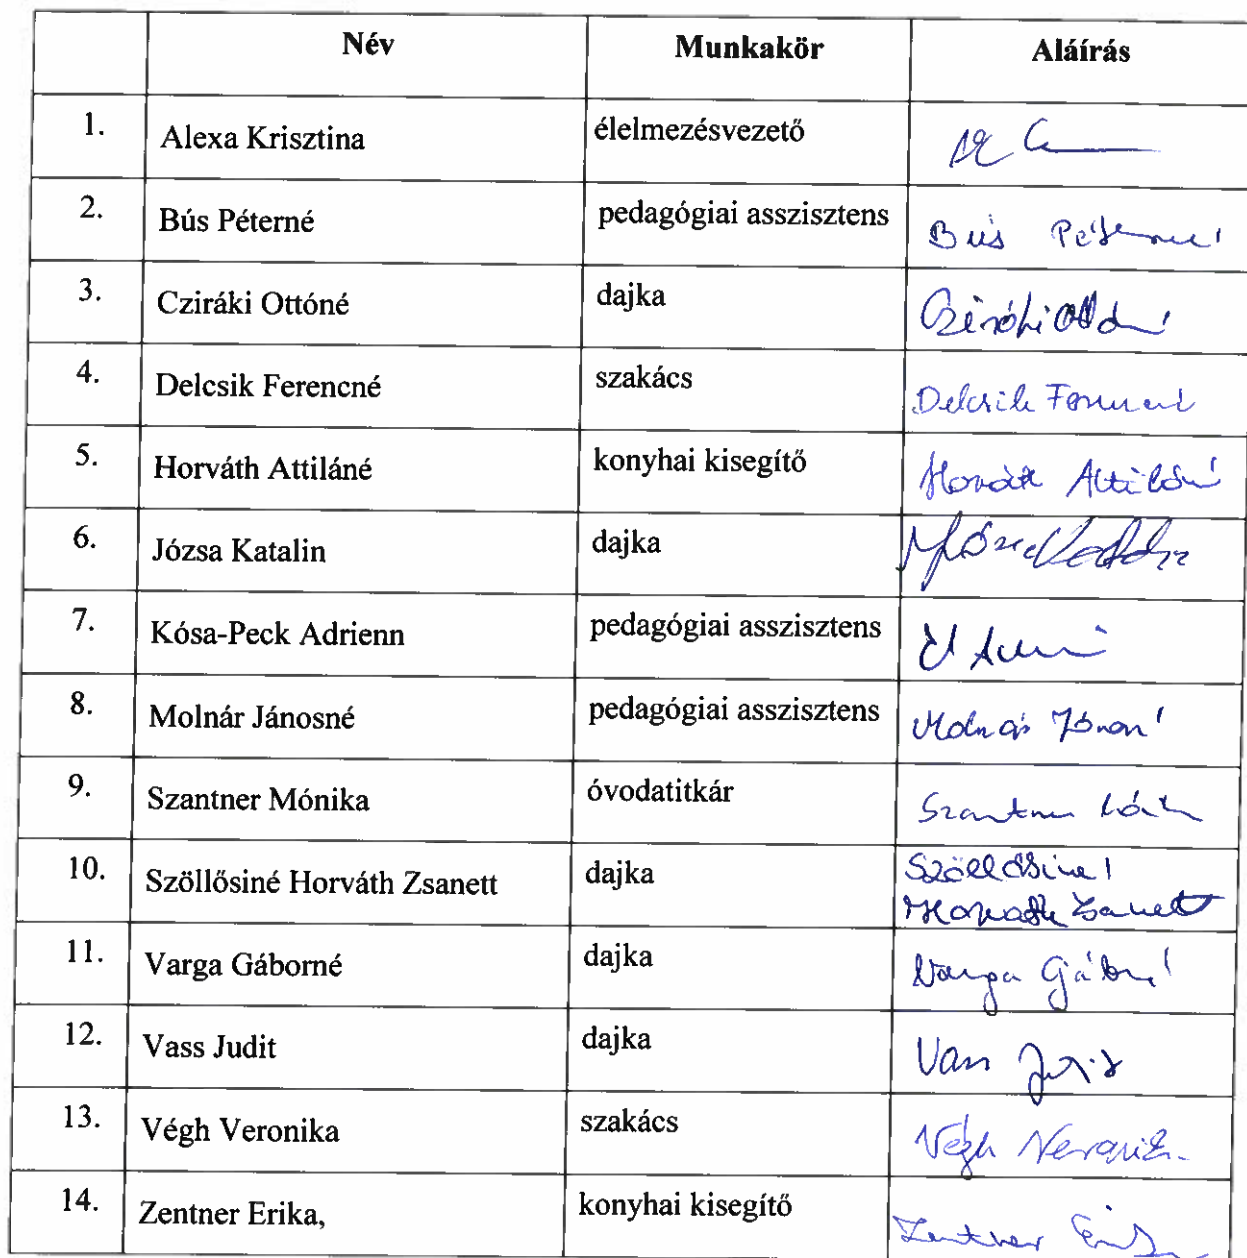 Név Munkakör Aláírás
1. Alexa Krisztina élelmezésvezető
2. Bús Péterné pedagógiai asszisztens Bús Péterné
3. Cziráki Ottóné dajka Cziráki Ottóné
4. Delcsik Ferencné szakács Delcsik Ferencné
5. Horváth Attiláné konyhai kisegítő Horváth Attiláné
6. Józsa Katalin dajka Józsa Katalin
7. Kósa-Peck Adrienn pedagógiai asszisztens
8. Molnár Jánosné pedagógiai asszisztens Molnár Jánosné
9. Szantner Mónika óvodatitkár Szantner Mónika
10. Szöllősiné Horváth Zsanett dajka Szöllősiné
Horváth Zsanett
11. Varga Gáborné dajka Varga Gáborné
12. Vass Judit dajka Vass Judit
13. Végh Veronika szakács Végh Veronika
14. Zentner Erika, konyhai kisegítő Zentner Erika